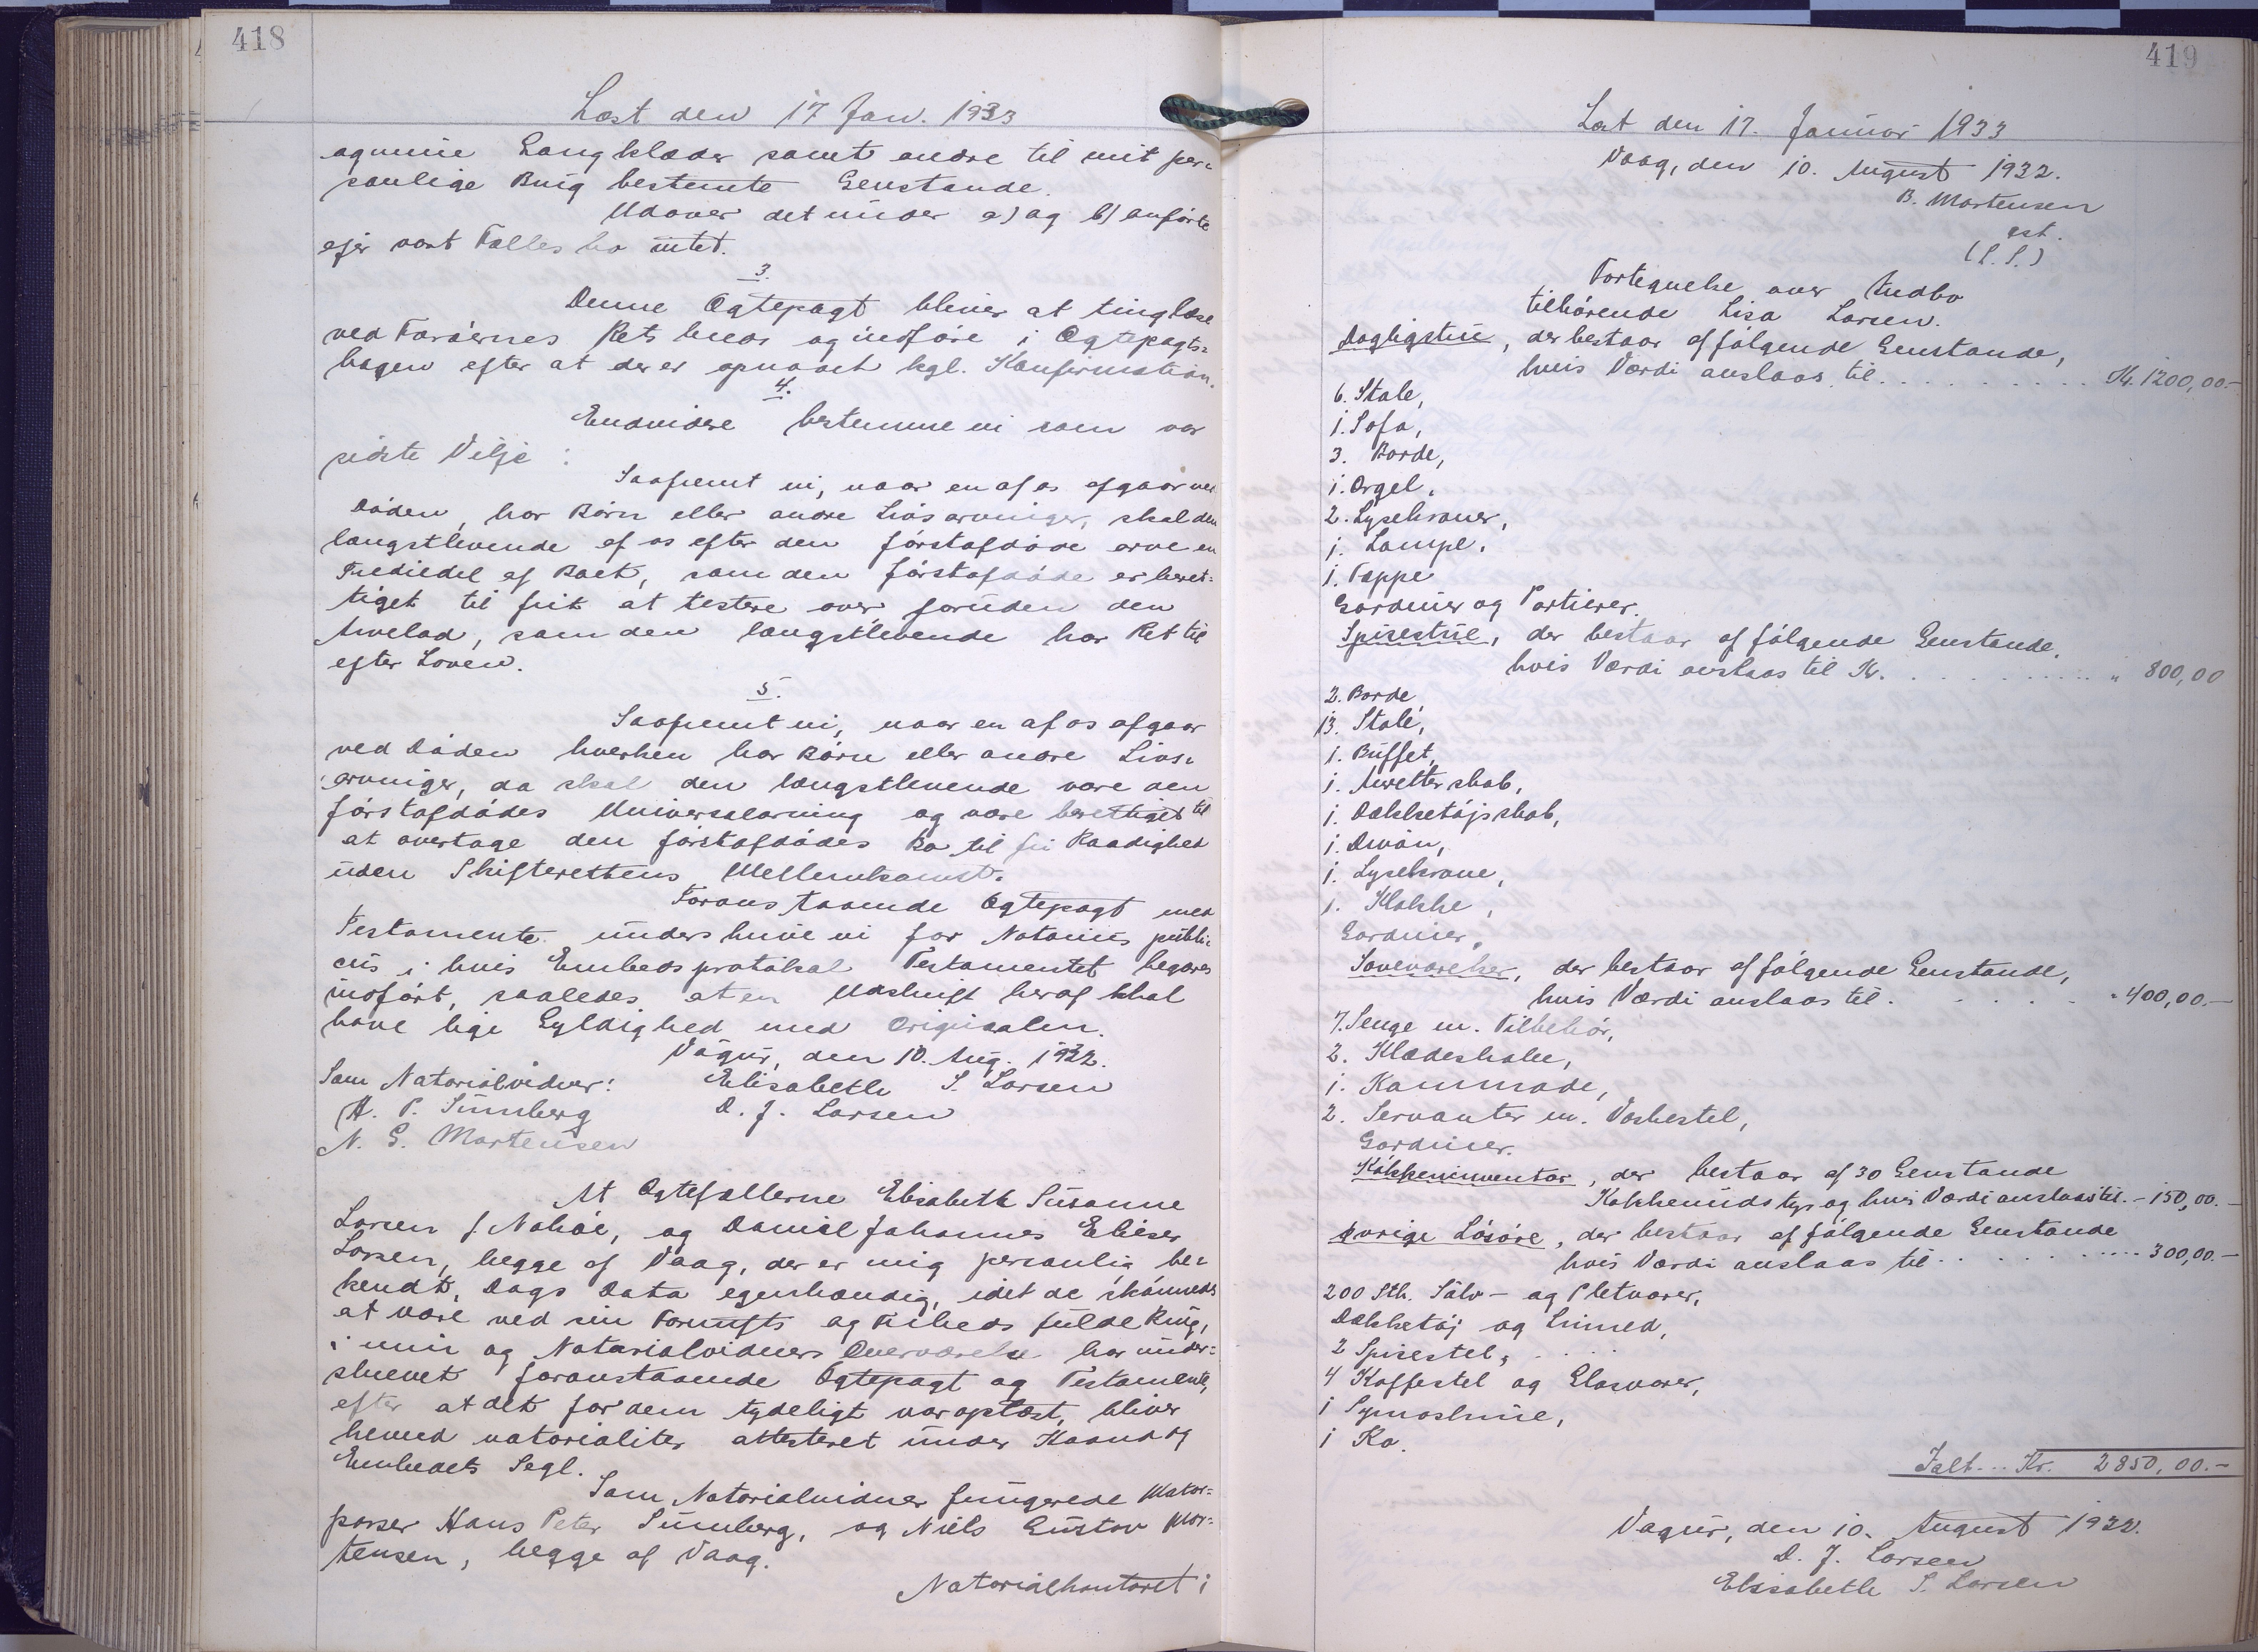 418
Læst den 17 Jan. 1933
og mine Gangklæder samt andre til mit per-
sonlige Brug bestemte Genstande.
Udover det under a) og b) anførte
ejer vort Fælles bo intet.
3.
Denne Ægtepagt bliver at tinglæse
ved Færøernes Rets kreds og indføre i Ægtepagts-
bogen efter at der er opnaaet kgl. Konfirmation.
4.
Endvidere bestemme vi som vor
sidste Vilje:
Saafremt vi, naar en af os afgaar ved
Døden, har Børn eller andre Livsarvinger, skal den
længstlevende af os efter den førstafdøde arve en
Trediedel af Boet, som den førstafdøde er beret-
tiget til frit at testere over, foruden den
Arvelod, som den længstlevende har Ret til
efter Loven.
5.
Saafremt vi, naar en af os afgaar
ved Døden hverken har Børn eller andre Livs-
arvinger, da skal den længstlevende være den
førstafdødes Universalarving og være berettiget til
at overtage den førstafdødes Bo til fri Raadighed
uden Skifterettens Mellemkomst.
Foranstaaende Ægtepagt med
Testamente underskrive vi for Notarius publi-
cus i hvis Embedsprotokol Testamentet begæres
indført, saaledes at en Udskrift heraf skal
have lige Gyldighed med Originalen.
Vágur, den 10. Aug. 1932.
Som Notarialvidner: Elisabeth S. Larsen
H. P. Sunnberg D. J. Larsen
N. G. Mortensen
At Ægtefællerne Elisabeth Susanne
Larsen f. Nolsøe, og Daniel Johannes Elieser
Larsen, begge af Vaag, der er mig personlig be-
kendt, Dags Dato egenhændig, idet de skønnedes
at være ved sin Fornufts og Friheds fulde Brug,
i min og Notarialvidners Overværelse har under-
skrevet foranstaaende Ægtepagt og Testamente,
efter at det for dem tydeligt var oplæst, bliver
herved notarialiter attesteret under Haand og
Embedets Segl.
Som Notarialvidner fungerede Motor-
passer Hans Peter Sunnberg, og Niels Gustav Mor-
tensen, begge af Vaag.
Notarialkontoret i
419
Læst den 17. Januar 1933
Vaag, den 10. August 1932.
B. Mortensen
cst.
(L.S.)
Fortegnelse over Indbo
tilhørende Lisa Larsen.
Dagligstue, der bestaar af følgende Genstande,
hvis Værdi anslaas til . . . . . . . . . Kr. 1200,00.-
6. Stole,
1. Sofa,
3. Borde,
1. Orgel,
2. Lysekroner,
1. Lampe,
1. Tæppe
Gardiner og Portierer.
Spisestue, der bestaar af følgende Genstande,
hvis Værdi anslaas til Kr. . . . . . . . . . " 800,00
2. Borde,
13. Stole,
1. Buffet,
1. Anretterskab,
1. Dækketøjsskab,
1. Divan,
1. Lysekrone,
1. Klokke,
Gardiner,
Soveværelser, der bestaar af følgende Genstande,
hvis Værdi anslaas til . . . . . " 400,00.-
7. Senge m. Tilbehør,
2. Klædeskabe,
1. Kommode,
2. Servanter m. Vaskestel,
Gardiner.
Køkkeninventar, der bestaar af 30 Genstande
Køkkenudstyr og hvis Værdi anslaas til. - 150,00.-
Øvrige Løsøre, der bestaar af følgende Genstande
hvis Værdi anslaas til . . . . . . . . . 300,00.-
200 Stk. Sølv- og Pletvarer,
Dækketøj og Linned,
2 Spisestel,
4 Kaffestel og Glasvarer,
1 Symaskine,
1 Ko.
Ialt... Kr. 2850,00.-
Vagur, den 10. August 1932.
D. J. Larsen
Elisabeth S. Larsen